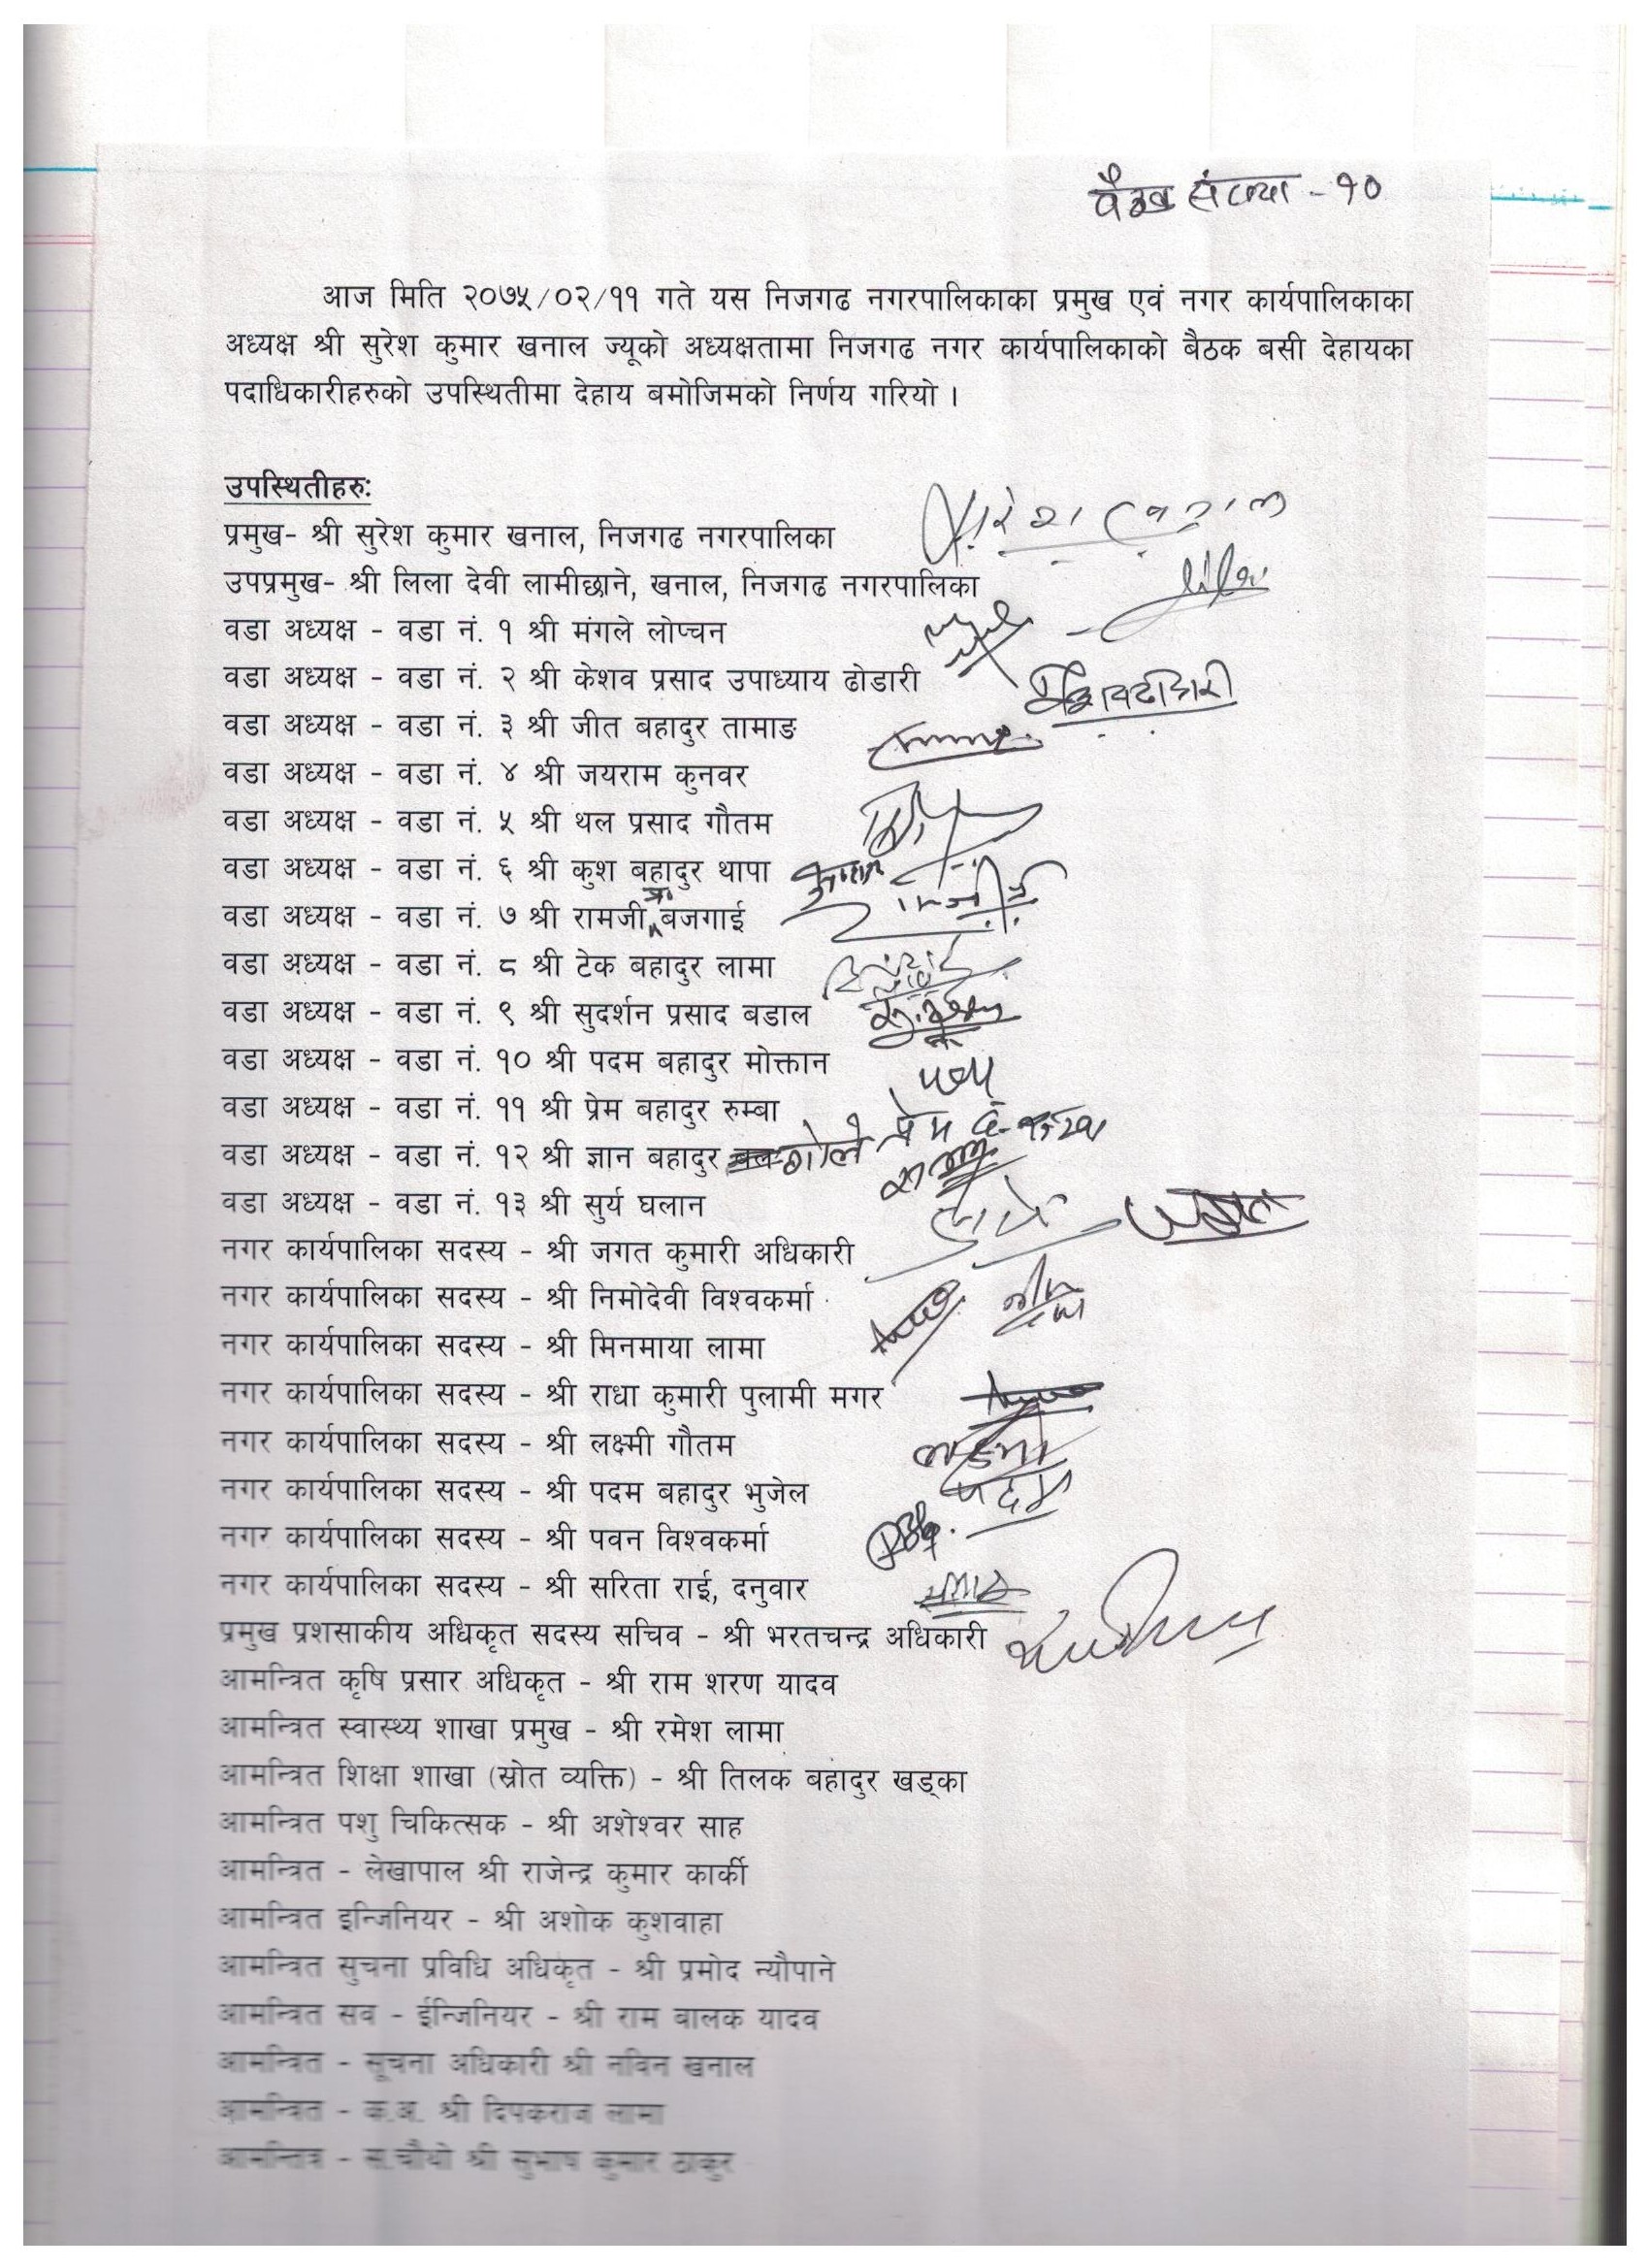 बैठक संख्या - १०
आज मिति २०७५/०२/११ गते यस निजगढ नगरपालिकाका प्रमुख एवं नगर कार्यपालिकाका
अध्यक्ष श्री सुरेश कुमार खनाल ज्यूको अध्यक्षतामा निजगढ नगर कार्यपालिकाको बैठक बसी देहायका
पदाधिकारीहरुको उपस्थितीमा देहाय बमोजिमको निर्णय गरियो ।
उपस्थितीहरुः
प्रमुख- श्री सुरेश कुमार खनाल, निजगढ नगरपालिका सुरेश खनाल
उपप्रमुख- श्री लिला देवी लामीछाने, खनाल, निजगढ नगरपालिका
वडा अध्यक्ष - वडा नं. १ श्री मंगले लोप्चन
वडा अध्यक्ष - वडा नं. २ श्री केशव प्रसाद उपाध्याय ढोडारी
वडा अध्यक्ष - वडा नं. ३ श्री जीत बहादुर तामाङ
वडा अध्यक्ष - वडा नं. ४ श्री जयराम कुनवर
वडा अध्यक्ष - वडा नं. ५ श्री थल प्रसाद गौतम
वडा अध्यक्ष - वडा नं. ६ श्री कुश बहादुर थापा
वडा अध्यक्ष - वडा नं. ७ श्री रामजी प्र बजगाई
वडा अध्यक्ष - वडा नं. ८ श्री टेक बहादुर लामा
वडा अध्यक्ष - वडा नं. ९ श्री सुदर्शन प्रसाद बडाल
वडा अध्यक्ष - वडा नं. १० श्री पदम बहादुर मोक्तान
वडा अध्यक्ष - वडा नं. ११ श्री प्रेम बहादुर रुम्बा
वडा अध्यक्ष - वडा नं. १२ श्री ज्ञान बहादुर गोले
वडा अध्यक्ष - वडा नं. १३ श्री सुर्य घलान
नगर कार्यपालिका सदस्य - श्री जगत कुमारी अधिकारी
नगर कार्यपालिका सदस्य - श्री निमोदेवी विश्वकर्मा
नगर कार्यपालिका सदस्य - श्री मिनमाया लामा
नगर कार्यपालिका सदस्य - श्री राधा कुमारी पुलामी मगर
नगर कार्यपालिका सदस्य - श्री लक्ष्मी गौतम
नगर कार्यपालिका सदस्य - श्री पदम बहादुर भुजेल पदम
नगर कार्यपालिका सदस्य - श्री पवन विश्वकर्मा
नगर कार्यपालिका सदस्य - श्री सरिता राई, दनुवार
प्रमुख प्रशसाकीय अधिकृत सदस्य सचिव - श्री भरतचन्द्र अधिकारी
आमन्त्रित कृषि प्रसार अधिकृत - श्री राम शरण यादव
आमन्त्रित स्वास्थ्य शाखा प्रमुख - श्री रमेश लामा
आमन्त्रित शिक्षा शाखा (स्रोत व्यक्ति) - श्री तिलक बहादुर खड्का
आमन्त्रित पशु चिकित्सक - श्री अशेश्वर साह
आमन्त्रित - लेखापाल श्री राजेन्द्र कुमार कार्की
आमन्त्रित इन्जिनियर - श्री अशोक कुशवाहा
आमन्त्रित सुचना प्रविधि अधिकृत - श्री प्रमोद न्यौपाने
आमन्त्रित सव - ईन्जिनियर - श्री राम बालक यादव
आमन्त्रित - सूचना अधिकारी श्री नविन खनाल
आमन्त्रित - क.अ. श्री दिपकराज लामा
आमन्तित्र - स.चौथो श्री सुभाष कुमार ठाकुर